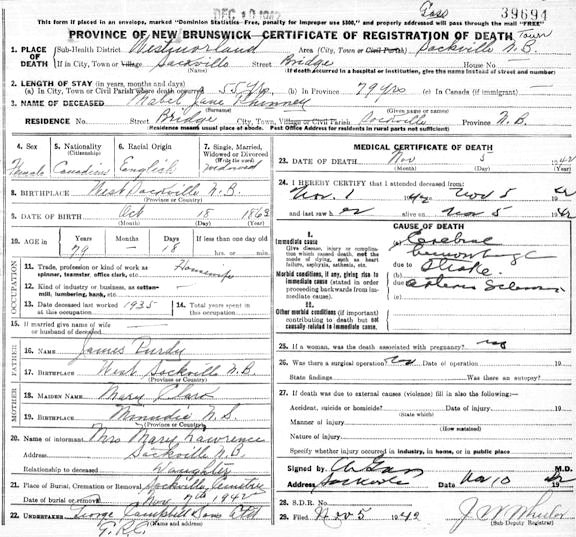 DEC 10 1942
39694
This form if placed in an envelope, marked "Dominion Statistics - Free, penalty for improper use $300," and properly addressed will pass through the mail "FREE"
PROVINCE OF NEW BRUNSWICK CERTIFICATE OF REGISTRATION OF DEATH
1. PLACE OF DEATH (Sub-Health District Westmorland Area (City, Town or Civil Parish) Sackville N.B. Town
If in City, Town or Village Sackville (Name) Street Bridge House No —
(If death occurred in a hospital or institution, give its name instead of street and number)
2. LENGTH OF STAY (in years, months and days)
(a) In City, Town or Civil Parish where death occurred 55 yrs. (b) In Province 79 yrs (c) In Canada (if immigrant) —
3. NAME OF DECEASED Mabel Jane Phinney
(Surname) (Given name or names)
RESIDENCE No. Street Bridge City, Town, Village or Civil Parish Sackville Province N.B.
(Residence means usual place of abode. Post Office Address for residents in rural parts not sufficient)
4. Sex Female
5. Nationality (Citizenship) Canadian
6. Racial Origin English
7. Single, Married, Widowed or Divorced (Write the word) Widowed
8. BIRTHPLACE West Sackville N.B.
(Province or Country)
9. DATE OF BIRTH Oct 18 1863
(Month) (Day) (Year)
10. AGE in Years 79 Months — Days 18 If less than one day hrs. or min.
OCCUPATION
11. Trade, profession or kind of work as spinner, teamster, office clerk, etc.
12. Kind of industry or business, as cotton-mill, lumbering, bank, etc. —
13. Date deceased last worked at this occupation 1935
14. Total years spent in this occupation
15. If married give name of wife or husband of deceased —
FATHER
16. Name James Purdy
17. Birthplace West Sackville N.B.
(Province or Country)
MOTHER
18. Maiden Name Mary Clark
19. Birthplace Minudie N.S.
(Province or Country)
20. Name of informant Mrs Mary Lawrence
Address Sackville N.B.
Relationship to deceased Daughter
21. Place of Burial, Cremation or Removal Sackville
Date of burial or removal Nov 7th 1942
22. UNDERTAKER George Campbell Sons Ltd
(Name and address)
MEDICAL CERTIFICATE OF DEATH
23. DATE OF DEATH Nov 5 1942
(Month) (Day) (Year)
24. I HEREBY CERTIFY that I attended deceased from:
Nov. 1 1942 to Nov 5 1942
and last saw her alive on Nov 5 1942
CAUSE OF DEATH
I.
Immediate cause
Give disease, injury or complication which caused death, not the mode of dying, such as heart failure, asphyxia, asthenia, etc.
Cerebral hemorrhage
due to Stroke
Morbid conditions, if any, giving rise to immediate cause (stated in order proceeding backwards from immediate cause).
due to
II.
Other morbid conditions (if important) contributing to death but not causally related to immediate cause.
25. If a woman, was the death associated with pregnancy? no
26. Was there a surgical operation? no Date of operation 19
State findings Was there an autopsy?
27. If death was due to external causes (violence) fill in also the following:—
Accident, suicide or homicide? Date of injury 19
(State which)
Manner of injury
(How sustained)
Nature of injury
Specify whether injury occurred in industry, in home, or in public place
Signed by M.D.
Address Sackville Date Nov 10 1942
28. S.D.R.
29. Filed Nov 5 1942 J W Wheeler
(Sub Deputy Registrar)